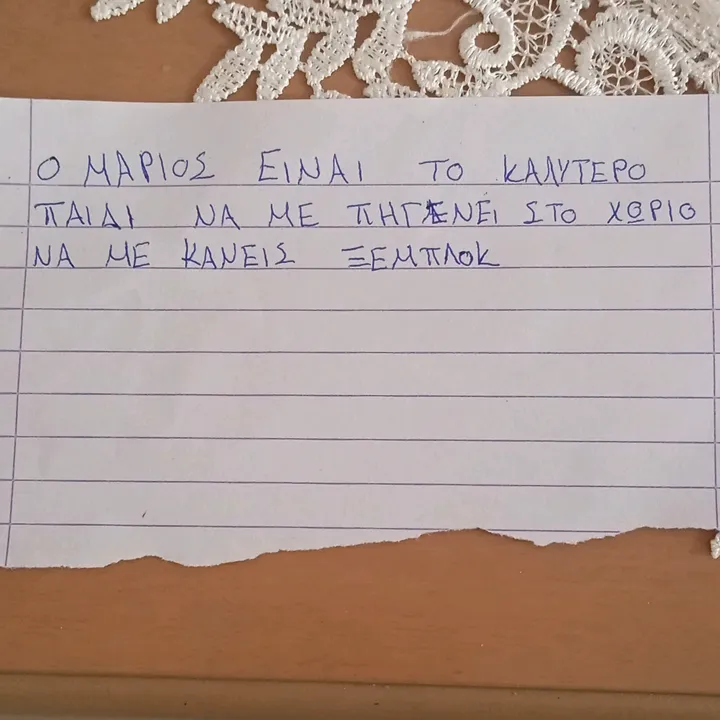 Ο ΜΑΡΙΟΣ ΕΙΝΑΙ ΤΟ ΚΑΛΥΤΕΡΟ
ΠΑΙΔΙ ΝΑ ΜΕ ΠΗΓΕΝΕΙ ΣΤΟ ΧΩΡΙΟ
ΝΑ ΜΕ ΚΑΝΕΙΣ ΞΕΜΠΛΟΚ